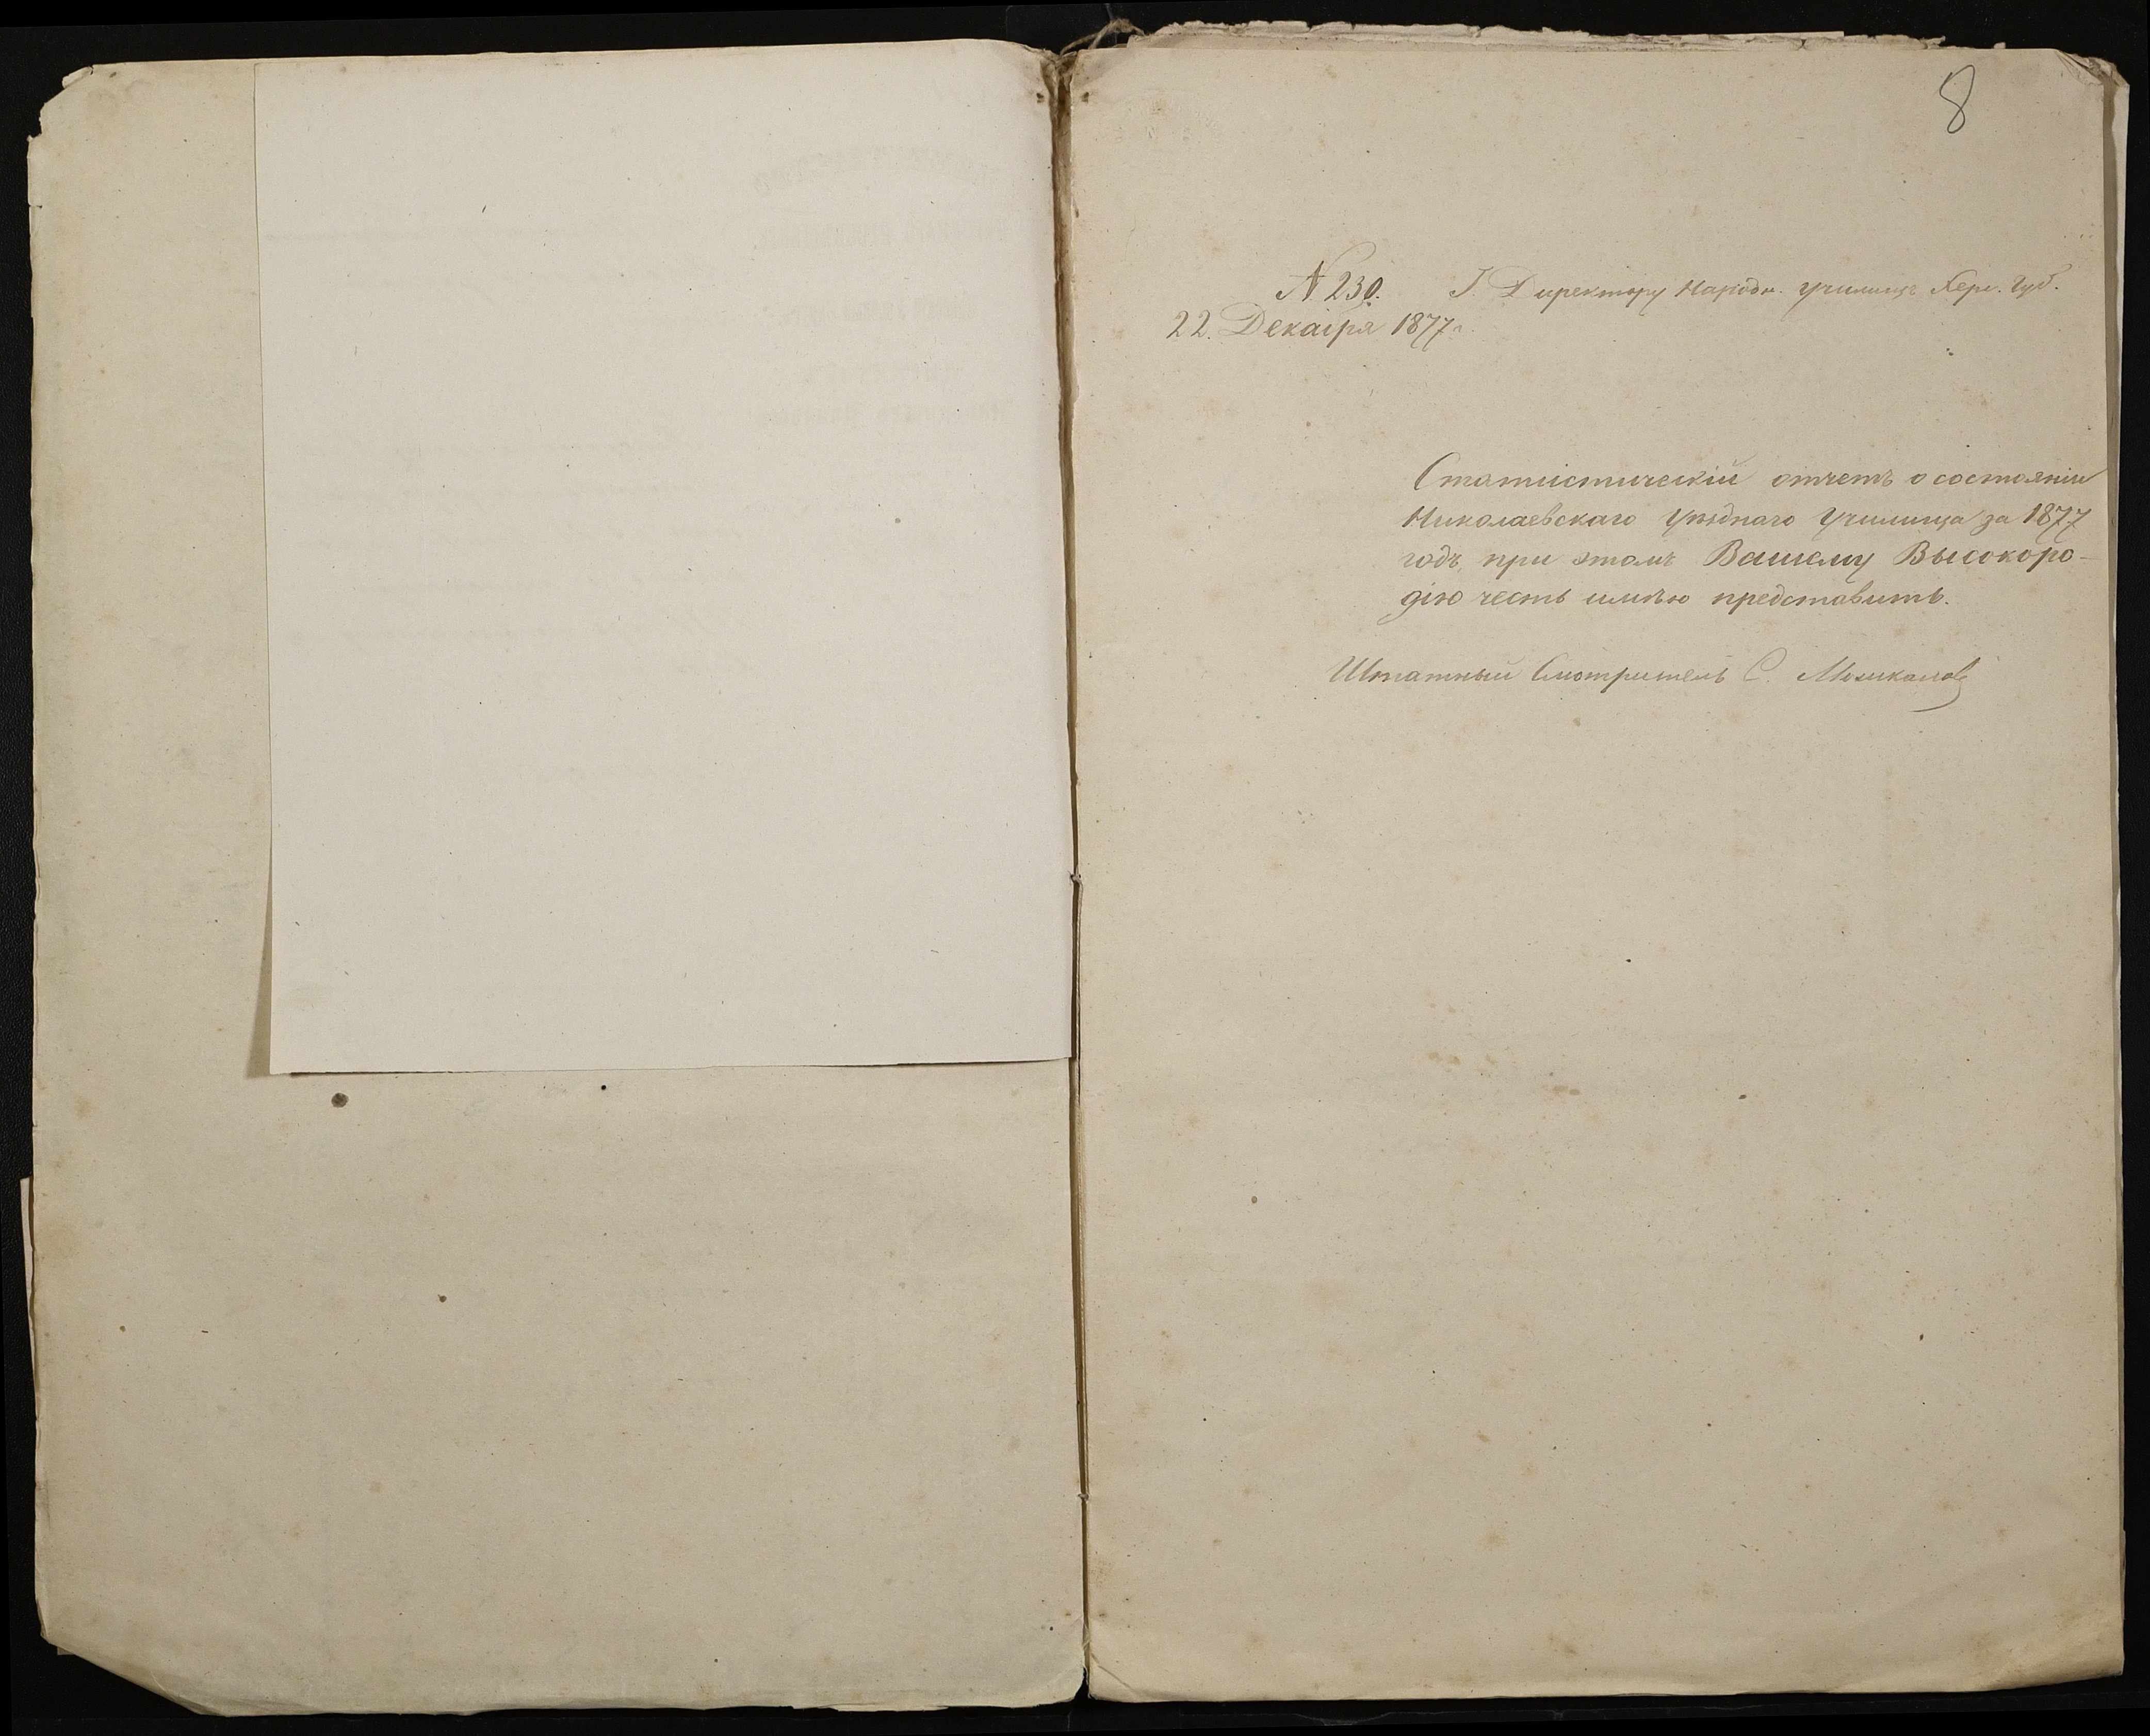 8
N 230. Г. Директору Народн. училищъ Херс. Губ.
22. Декабря 1877 г.
Статистическій отчетъ о состояніи
Николаевскаго Уѣзднаго Училища за 1877
годъ, при этомъ Вашему Высокоро-
дію честь имѣю представить.
Штатный Смотритель С.